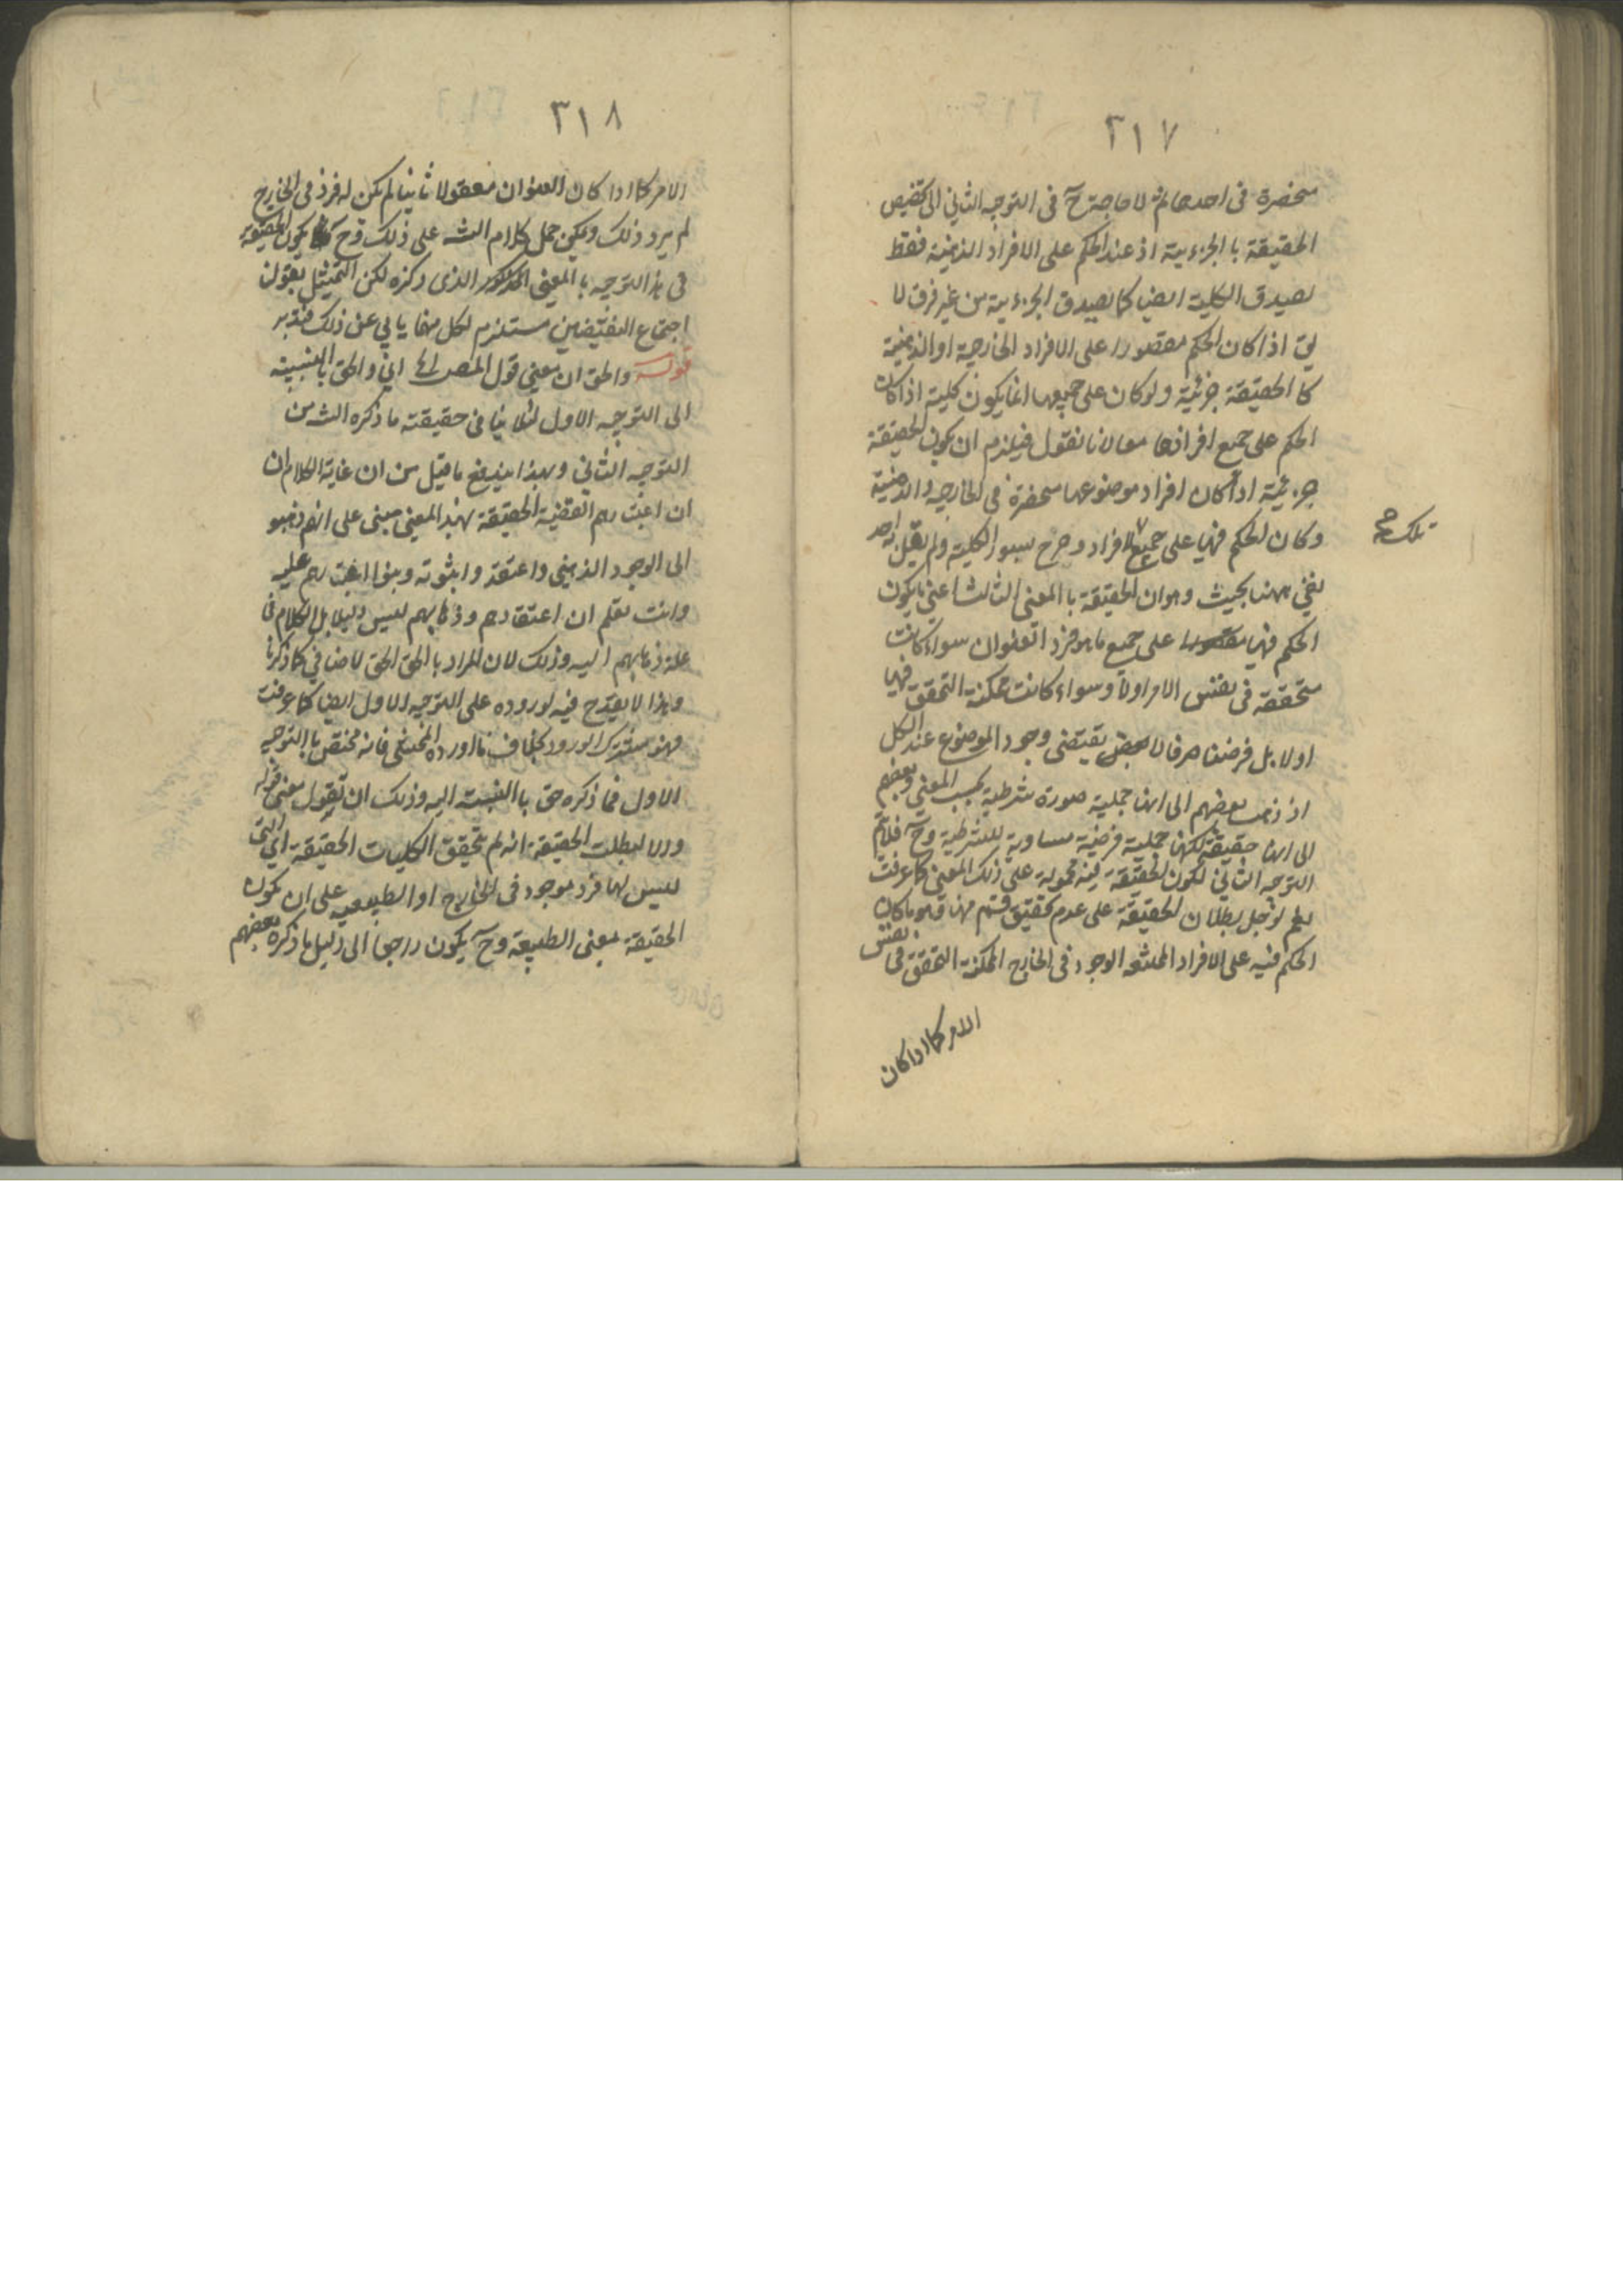 ٣١٧
منحصرة في احدهما ثم لا حاجة ح في التوجيه الثاني الى تخصيص
الحقيقة با الجزءية اذ عند الحكم على الافراد الذهنية فقط
يصدق الكلية ايضا كما يصدق الجزءية من غير فرق لا
يق اذا كان الحكم مقصورا على الافراد الخارجية او الذهنية
كا الحقيقة جزئية ولو كان على جميعها انما يكون كلية اذا كان
الحكم على جميع افرادها معا لانا نقول فيلزم ان يكون الحقيقة
جزئية اذا كان افراد موضوعها منحصرة في الخارجية والذهنية
وكان الحكم فيها على جميع الافراد وصرح بسور الكلية ولم يقل به احد
تلك صح
بقي ههنا بحيث وهو ان الحقيقة با المعنى الثالث اعني ما يكون
الحكم فيها مقصورا على جميع ما هو فرد العنوان سواء كانت
متحققة في نفس الامر اولا وسواء كانت ممكنة التحقق فيها
اولا بل فرضنا صرفا لا يقتضى وجود الموضوع عند الكل
اذ ذهب بعضهم الى انها حملية صورة شرطية بحسب المعنى وبعضهم
الى انها حقيقة لكنها حملية فرضية مساوية للشرطية وح فلا يتم
التوجيه الثاني لكون الحقيقة فيه محمولة على ذلك المعنى كما عرفت
نعم لو حمل بطلان الحقيقة على عدم تحقيق قسم منها وهو ما كان
الحكم فيه على الافراد الممتنعة الوجود في الخارج الممكنة التحقق في نفس
الامر كما اذا كان
٣١٨
الامر كما اذا كان العنوان معقولا ثانيا لم يكن له فرد في الخارج
لم يرد ذلك ويمكن حمل كلام الشه على ذلك وح يكون الحقيقة
في هذا التوجيه با المعنى المذكور الذى ذكره لكن التمثيل بقولن
اجتماع النقيضين مستلزم لكل منهما يابي عن ذلك فتدبر
قوله والحق ان معنى قول المصـ اه اي والحق با النسبة
الى التوجيه الاول لئلا ينافى حقيقة ما ذكره الشه من
التوجيه الثاني وبهذا يندفع ما قيل من ان غاية الكلام ان
ان اعتبارهم القضية الحقيقة بهذا المعنى مبنى على انهم ذهبو
الى الوجود الذهني واعتقدوا بثبوته وبنوا اعتبارهم عليه
وانت تعلم ان اعتقادهم وذهابهم ليس دليلا بل الكلام في
علة ذهابهم اليه وذلك لان المراد با الحق الحق الاضافي كما ذكرنا
وهذا لا يقدح فيه لوروده على التوجيه الاول ايضا كما عرفت
فهو مشترك الورود بخلاف ما اورده المحشي فانه مختص با التوجيه
الاول فما ذكره حق با النسبة اليه وذلك ان تقول معنى قوله
والا لبطلت الحقيقة انه لم يتحقق الكليات الحقيقة اي التى
ليس لها فرد موجود في الخارج او الطبيعية على ان يكون
الحقيقة بمعنى الطبيعة وح يكون راجعا الى دليل ما ذكره بعضهم